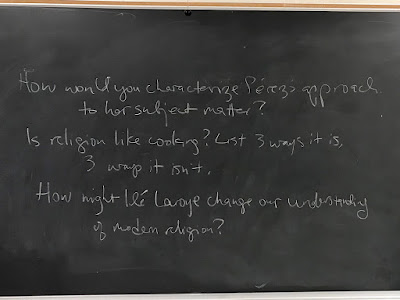 How would you characterize Pérez's approach
to her subject matter?
Is religion like cooking? List 3 ways it is,
3 ways it isn't.
How might Ilé Laroye change our understanding
of modern religion?